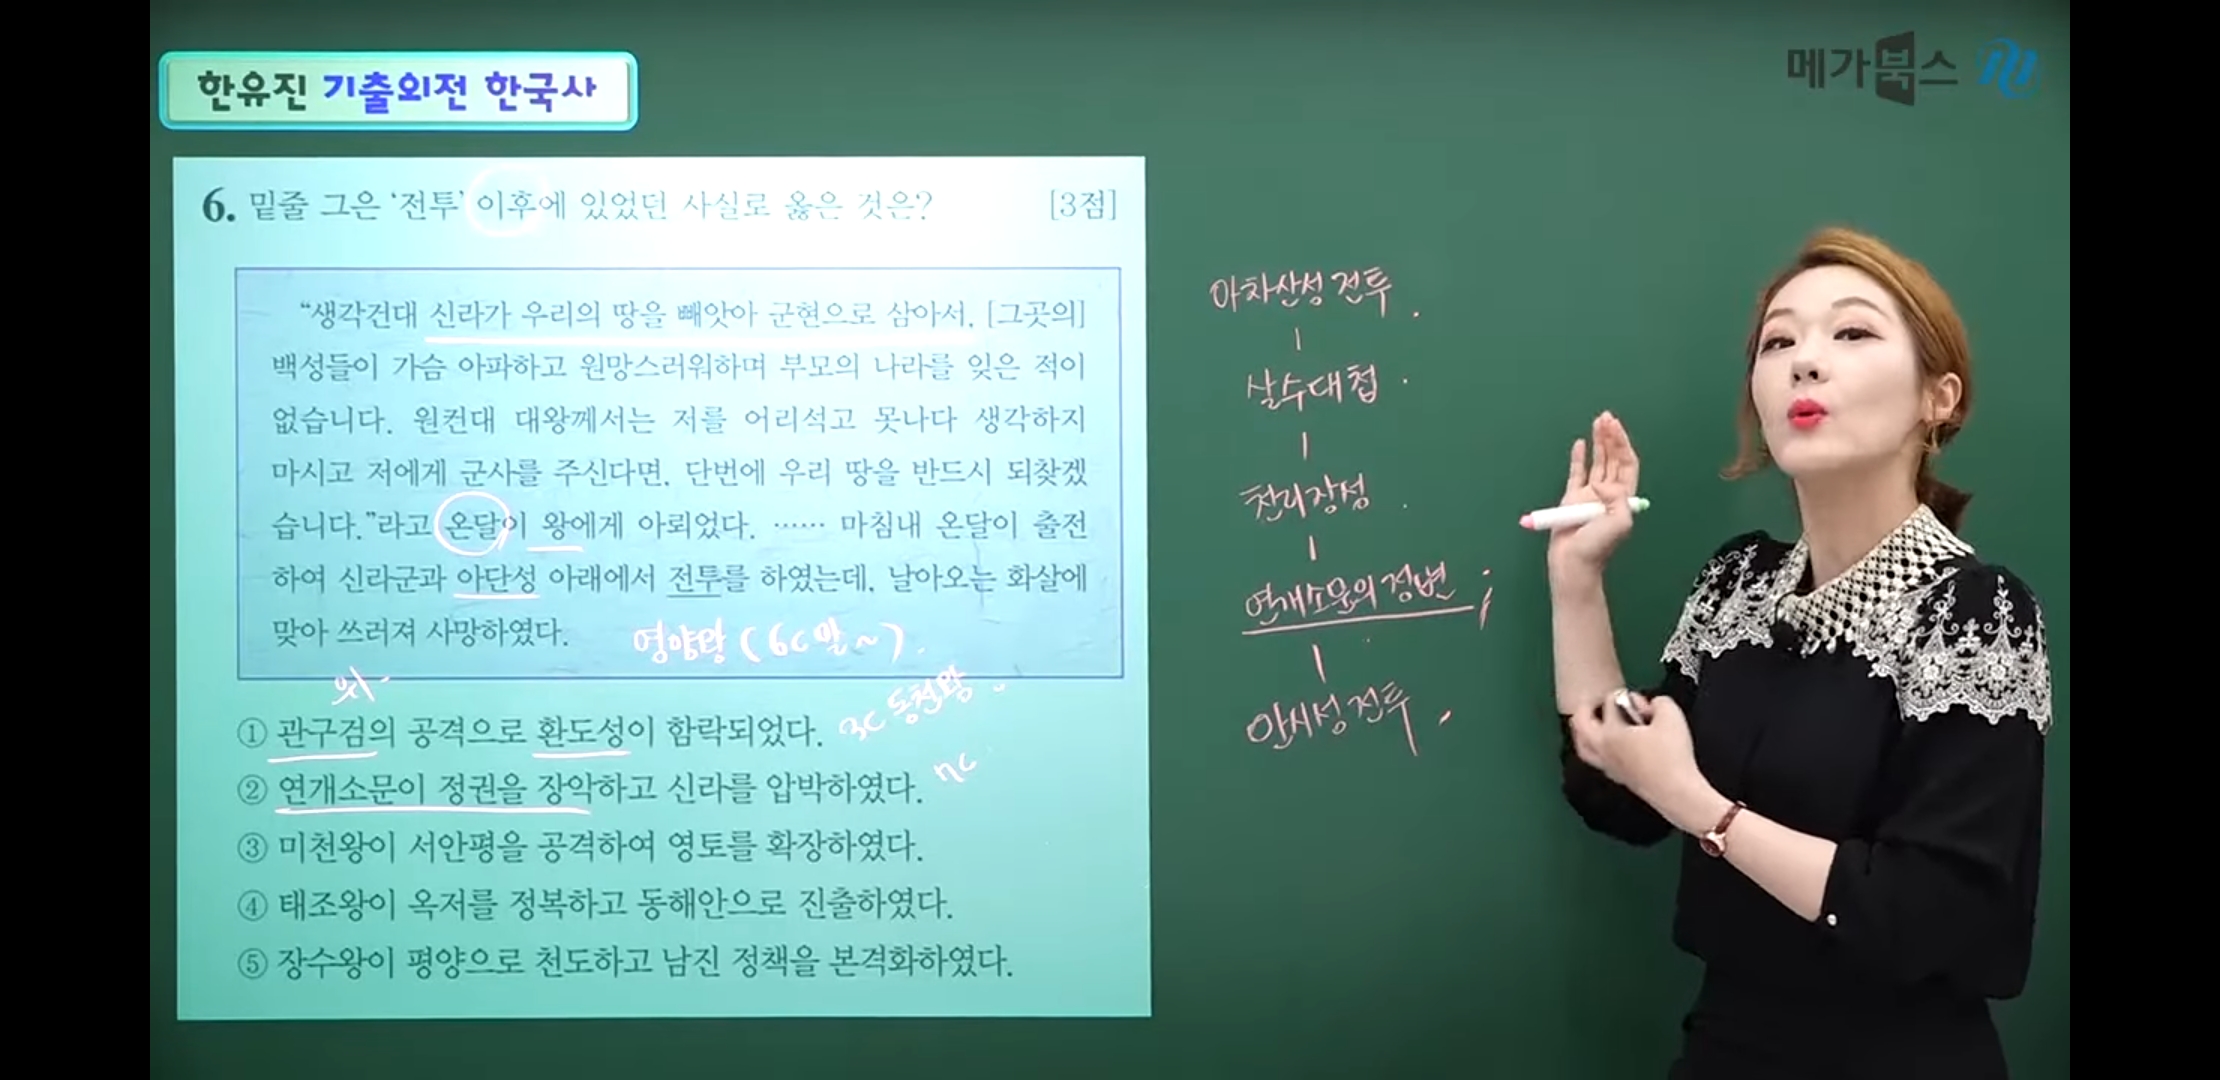 한유진 기출외전 한국사
메가북스
6. 밑줄 그은 '전투' 이후에 있었던 사실로 옳은 것은? [3점]
"생각건대 신라가 우리의 땅을 빼앗아 군현으로 삼아서, [그곳의]
백성들이 가슴 아파하고 원망스러워하며 부모의 나라를 잊은 적이
없습니다. 원컨대 대왕께서는 저를 어리석고 못나다 생각하지
마시고 저에게 군사를 주신다면, 단번에 우리 땅을 반드시 되찾겠
습니다."라고 온달이 왕에게 아뢰었다. …… 마침내 온달이 출전
하여 신라군과 아단성 아래에서 전투를 하였는데, 날아오는 화살에
맞아 쓰러져 사망하였다.
영양왕 (6C말~).
위
① 관구검의 공격으로 환도성이 함락되었다.
3C 동천왕
② 연개소문이 정권을 장악하고 신라를 압박하였다.
7C
③ 미천왕이 서안평을 공격하여 영토를 확장하였다.
④ 태조왕이 옥저를 정복하고 동해안으로 진출하였다.
⑤ 장수왕이 평양으로 천도하고 남진 정책을 본격화하였다.
아차산성 전투
살수대첩
천리장성
연개소문의 정변
안시성 전투